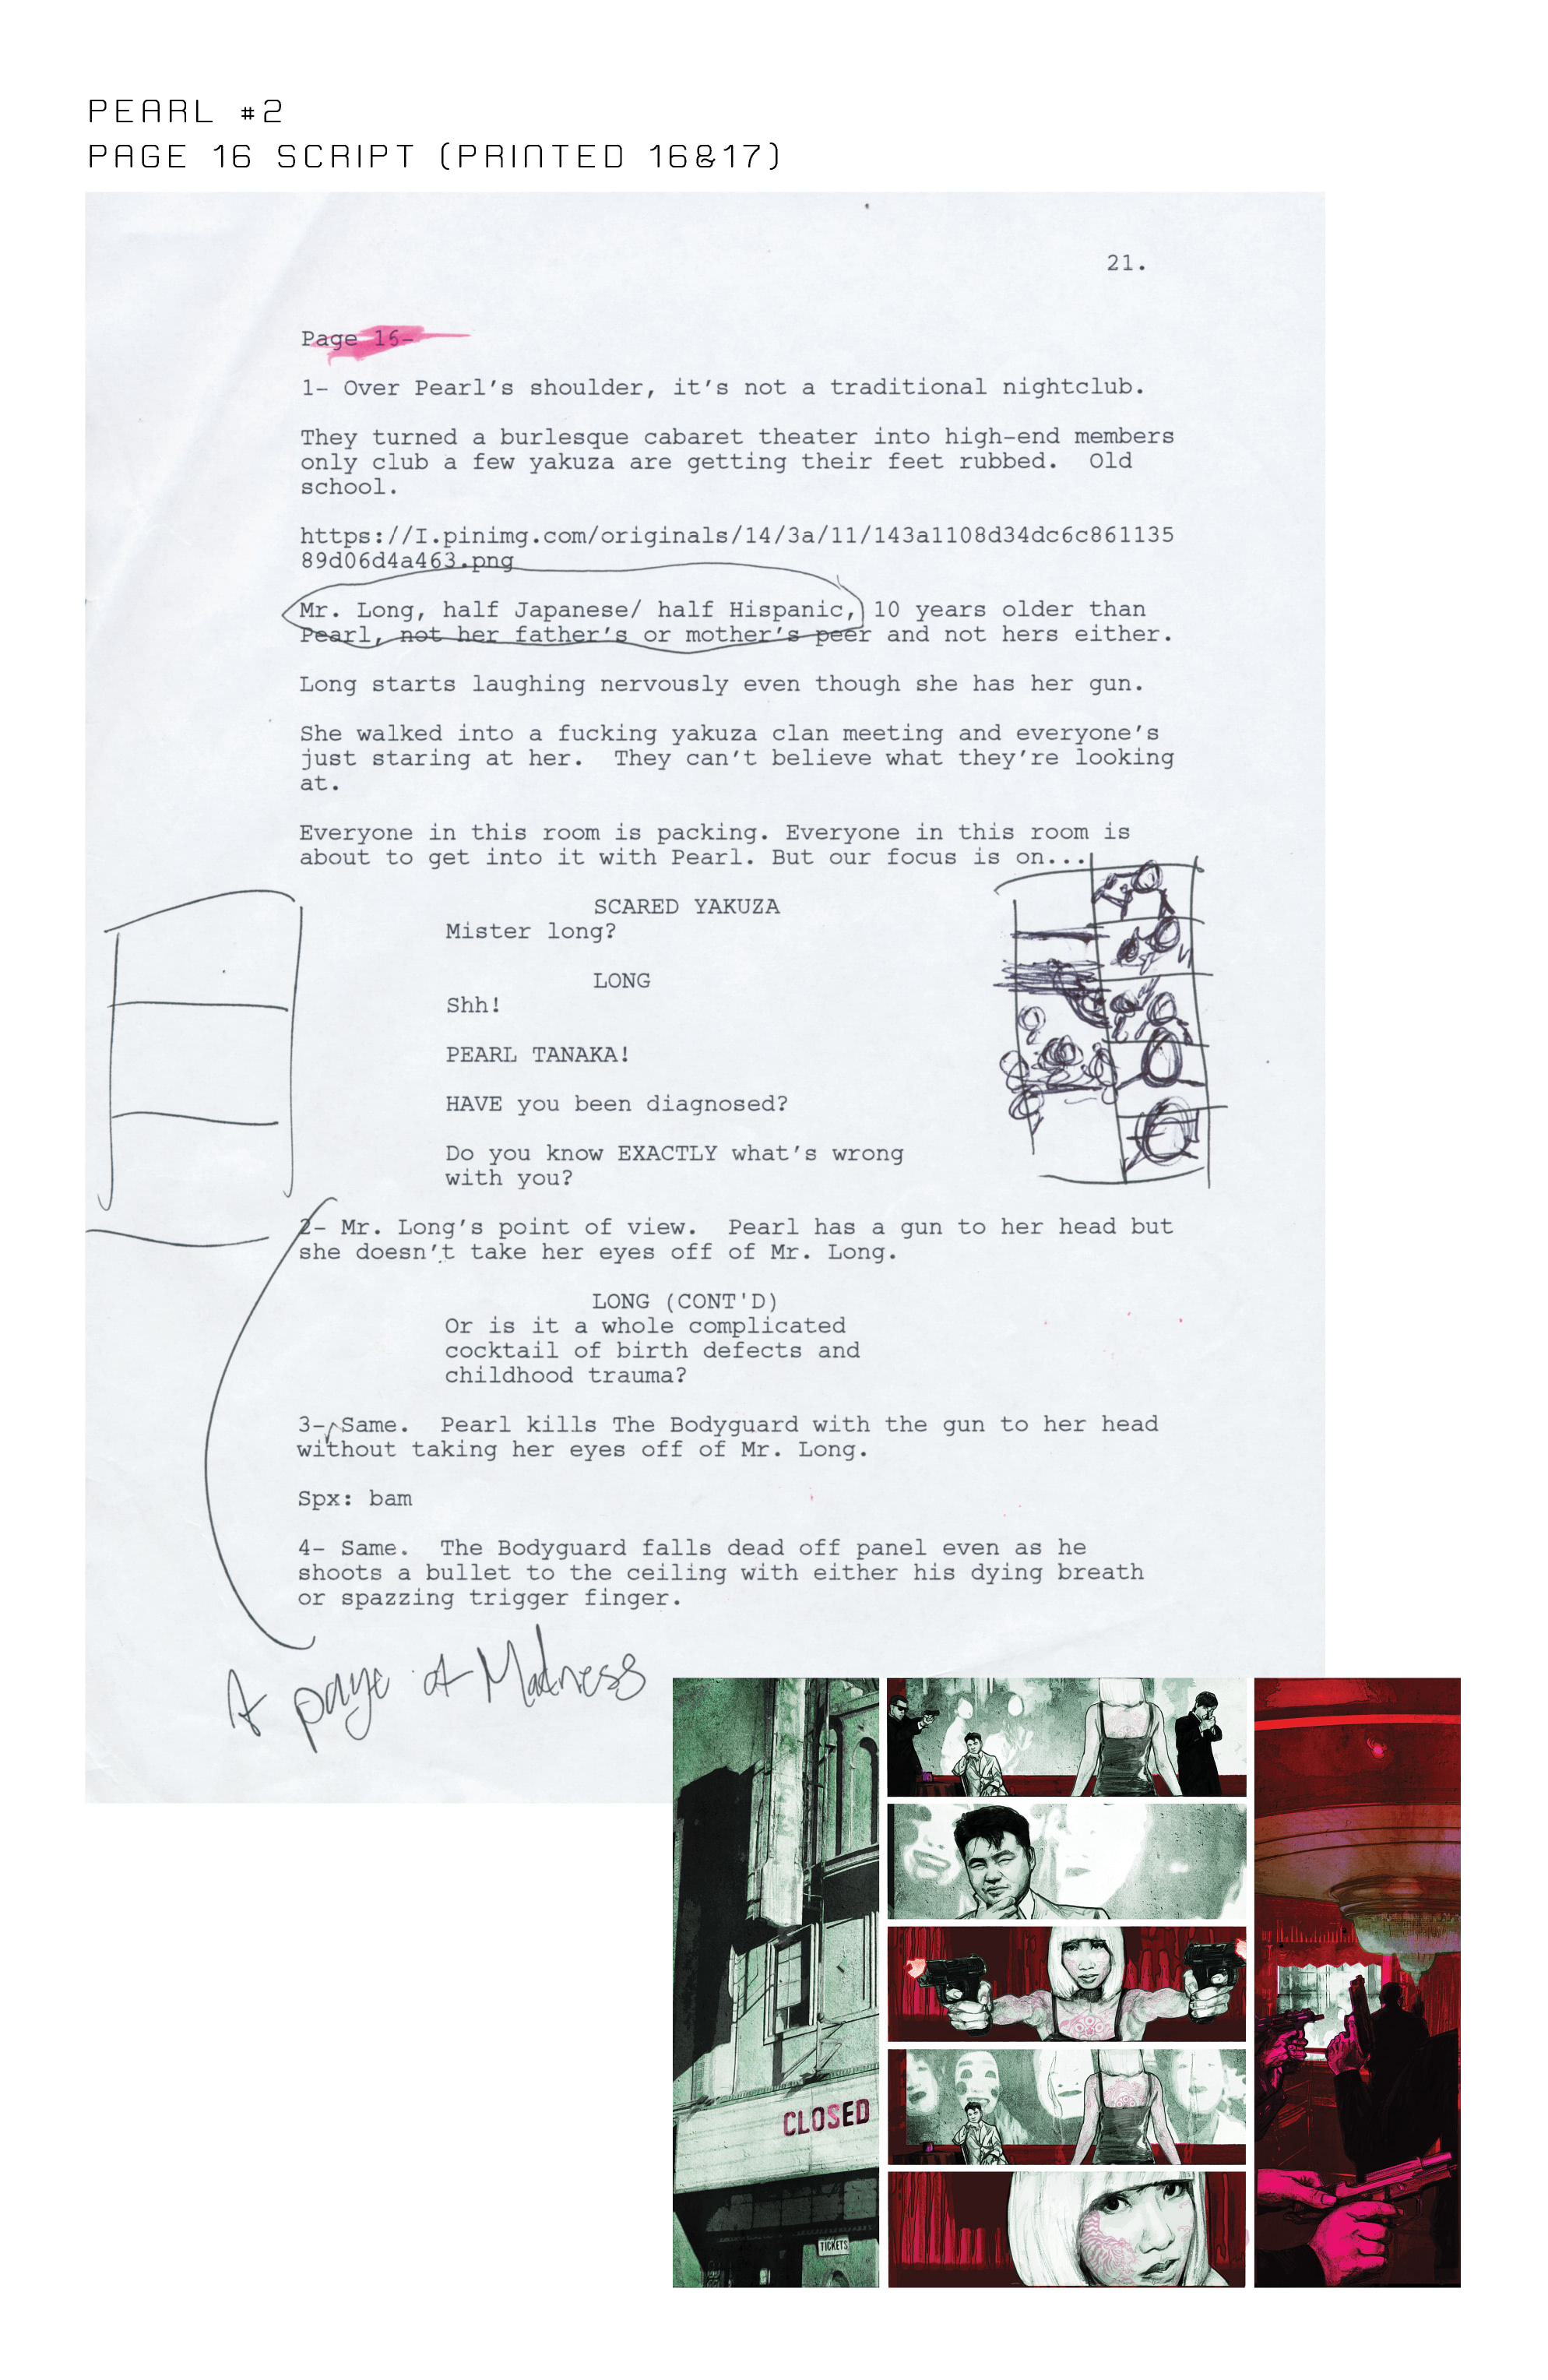 PEARL #2
PAGE 16 SCRIPT (PRINTED 16&17)
21.
Page 16-
1- Over Pearl's shoulder, it's not a traditional nightclub.
They turned a burlesque cabaret theater into high-end members
only club a few yakuza are getting their feet rubbed.  Old
school.
https://I.pinimg.com/originals/14/3a/11/143a1108d34dc6c861135
89d06d4a463.png
Mr. Long, half Japanese/ half Hispanic, 10 years older than
Pearl, not her father's or mother's peer and not hers either.
Long starts laughing nervously even though she has her gun.
She walked into a fucking yakuza clan meeting and everyone's
just staring at her.  They can't believe what they're looking
at.
Everyone in this room is packing. Everyone in this room is
about to get into it with Pearl. But our focus is on...
SCARED YAKUZA
Mister long?
LONG
Shh!
PEARL TANAKA!
HAVE you been diagnosed?
Do you know EXACTLY what's wrong
with you?
2- Mr. Long's point of view.  Pearl has a gun to her head but
she doesn't take her eyes off of Mr. Long.
LONG (CONT'D)
Or is it a whole complicated
cocktail of birth defects and
childhood trauma?
3- Same.  Pearl kills The Bodyguard with the gun to her head
without taking her eyes off of Mr. Long.
Spx: bam
4- Same.  The Bodyguard falls dead off panel even as he
shoots a bullet to the ceiling with either his dying breath
or spazzing trigger finger.
A page of Madness
CLOSED
TICKETS